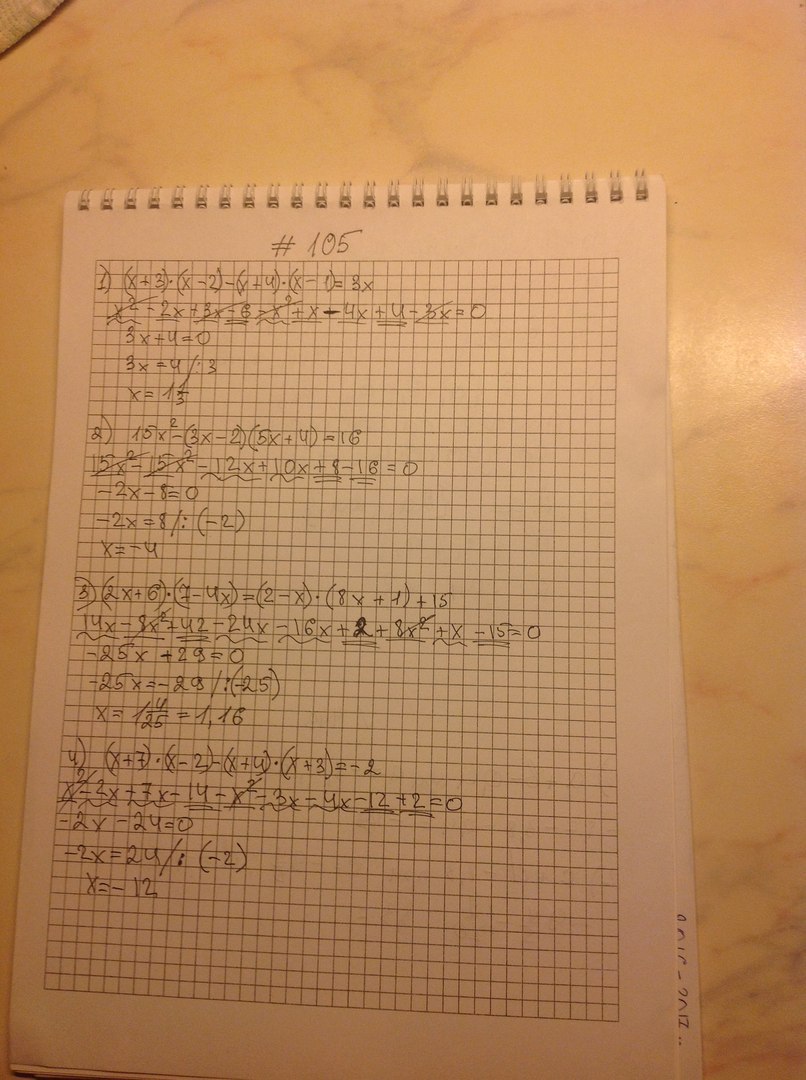 # 105
1) (x+3)·(x-2)-(x+4)·(x-1)=3x
x²-2x+3x-6-x²+x-4x+4-3x=0
3x+4=0
3x=4/:3
x=1 1/3
2) 15x²-(3x-2)(5x+4)=16
15x²-15x²-12x+10x+8-16=0
-2x-8=0
-2x=8/:(-2)
x=-4
3) (2x+6)·(7-4x)=(2-x)·(8x+1)+15
14x-8x²+42-24x-16x+2+8x²+x-15=0
-25x+29=0
-25x=-29/:(-25)
x=1 4/25=1,16
4) (x+7)·(x-2)-(x+4)·(x+3)=-2
x²-2x+7x-14-x²-3x-4x-12+2=0
-2x-24=0
-2x=24/:(-2)
x=-12